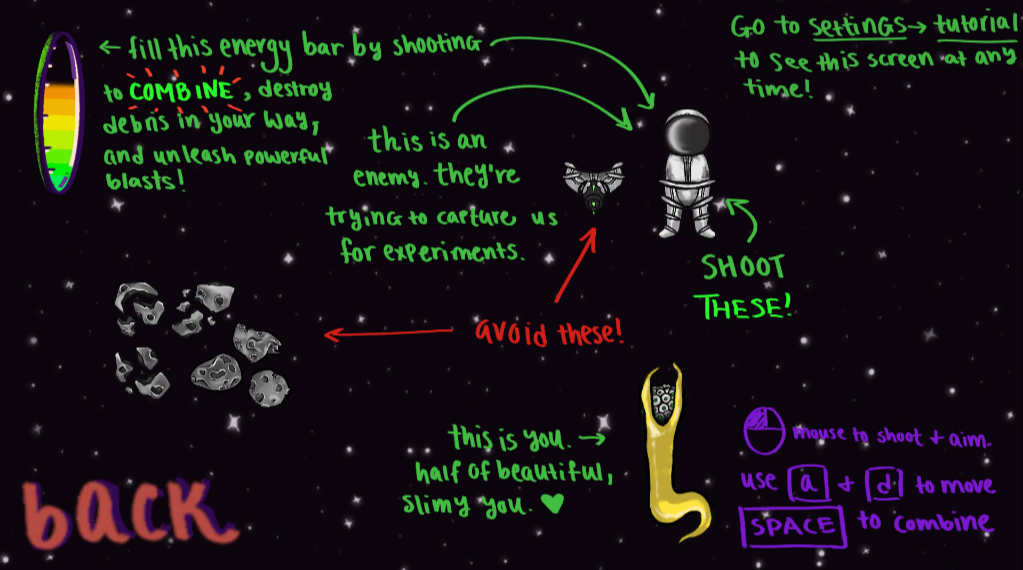 ← fill this energy bar by shooting
to COMBINE, destroy
debris in your way,
and unleash powerful
blasts!
Go to settings → tutorial
to see this screen at any
time!
this is an
enemy. they're
trying to capture us
for experiments.
SHOOT
THESE!
avoid these!
this is you. →
half of beautiful,
slimy you. ♥
mouse to shoot + aim.
use a + d to move
SPACE to combine
back